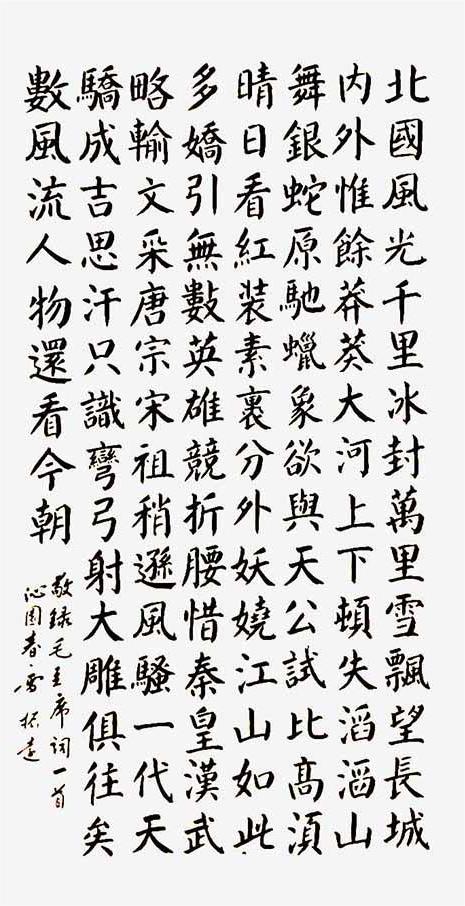 北國風光千里冰封萬里雪飄望長城
内外惟餘莽莽大河上下頓失滔滔山
舞銀蛇原馳蠟象欲與天公試比高須
晴日看紅装素裹分外妖嬈江山如此
多嬌引無數英雄競折腰惜秦皇漢武
略輸文采唐宗宋祖稍遜風騷一代天
驕成吉思汗只識彎弓射大雕俱往矣
數風流人物還看今朝
敬録毛主席詞一首
沁園春·雪